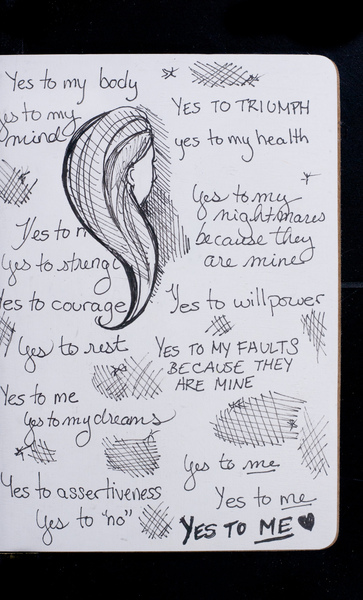 Yes to my body
yes to my
mind
Yes to
Yes to
Yes to courage
Yes to rest
Yes to me
Yes to my dreams
Yes to assertiveness
Yes to "no"
YES TO TRIUMPH
yes to my health
Yes to my
nightmares
because they
are mine
Yes to willpower
YES TO MY FAULTS
BECAUSE THEY
ARE MINE
Yes to me
Yes to me
YES TO ME